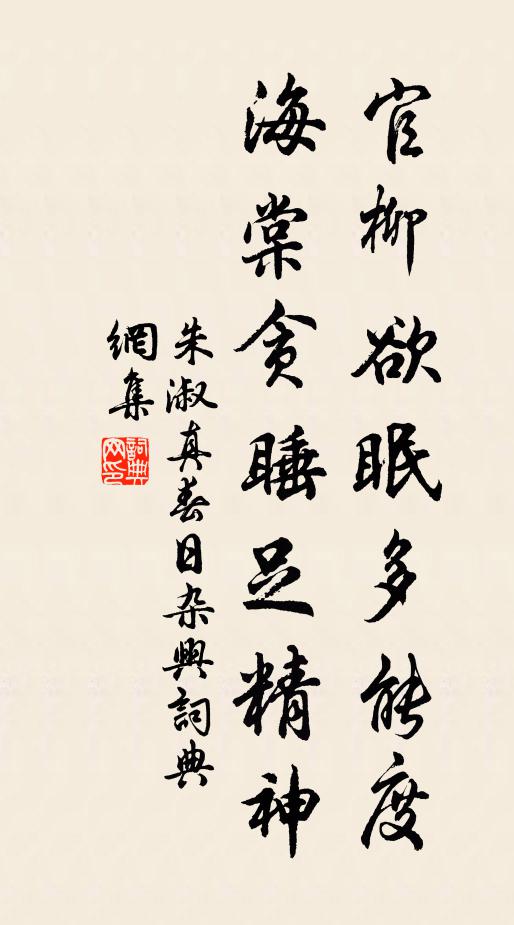 官柳欲眠多能度
海棠貪睡足精神
朱淑真春日杂興詞典
網集
詞典网印